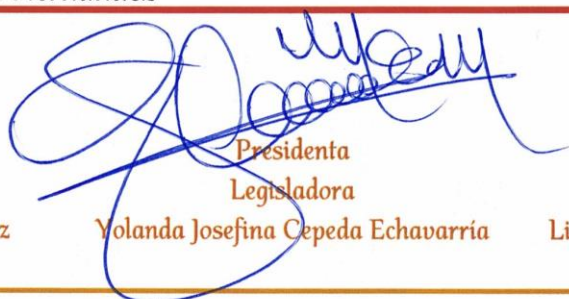 Presidenta
Legisladora
z Yolanda Josefina Cepeda Echavarría Li